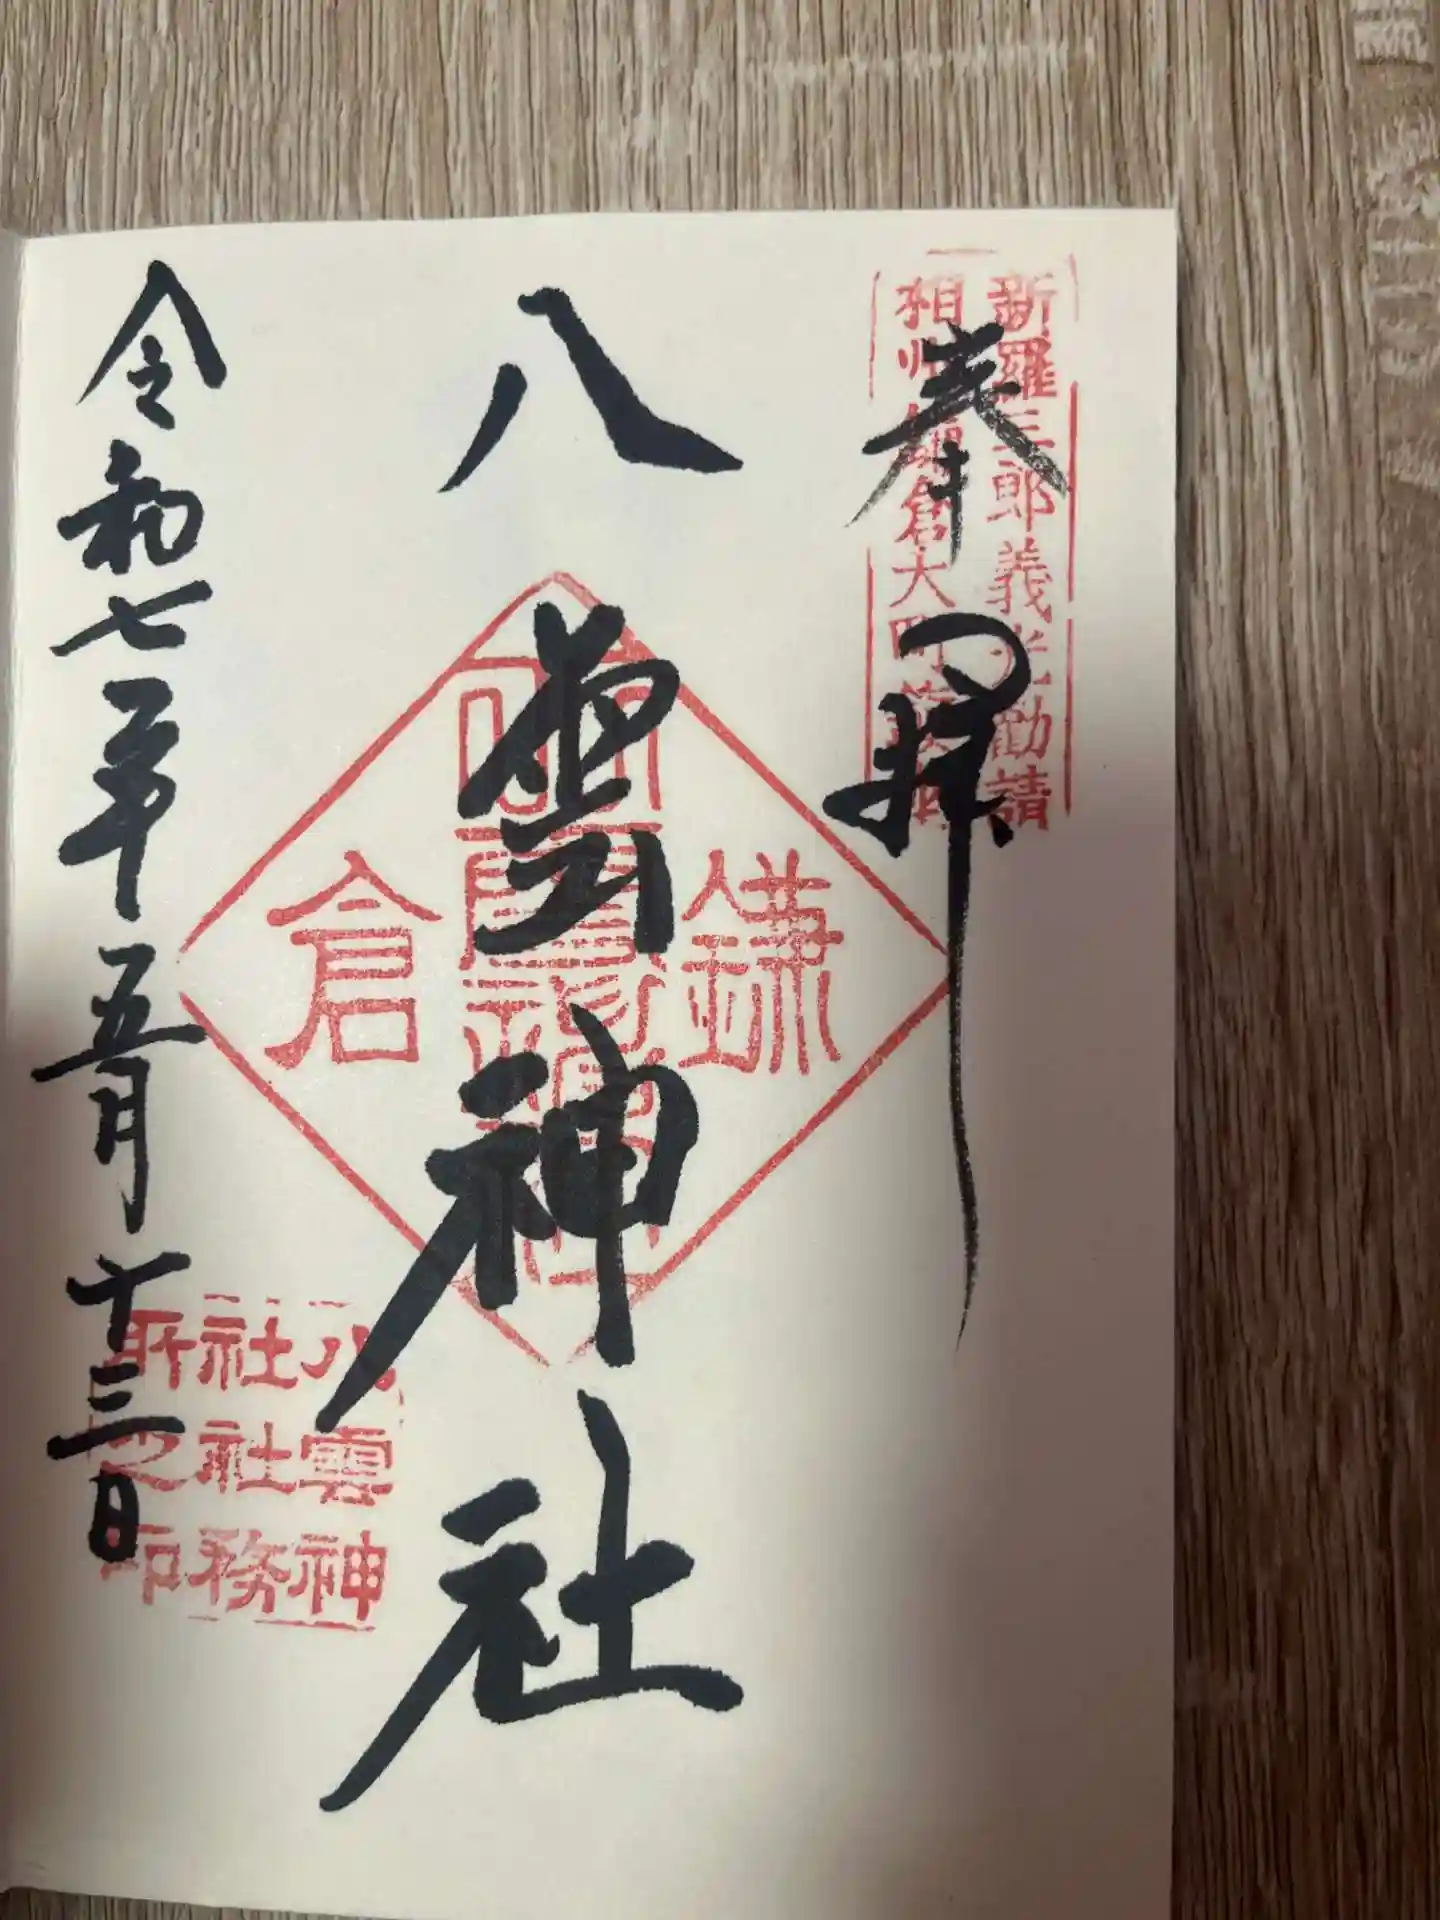 新羅三郎義光勧請
相州鎌倉大町鎮座
奉拝
八雲神社
鎌倉
八雲神
社社務
所之印
令和七年五月十三日